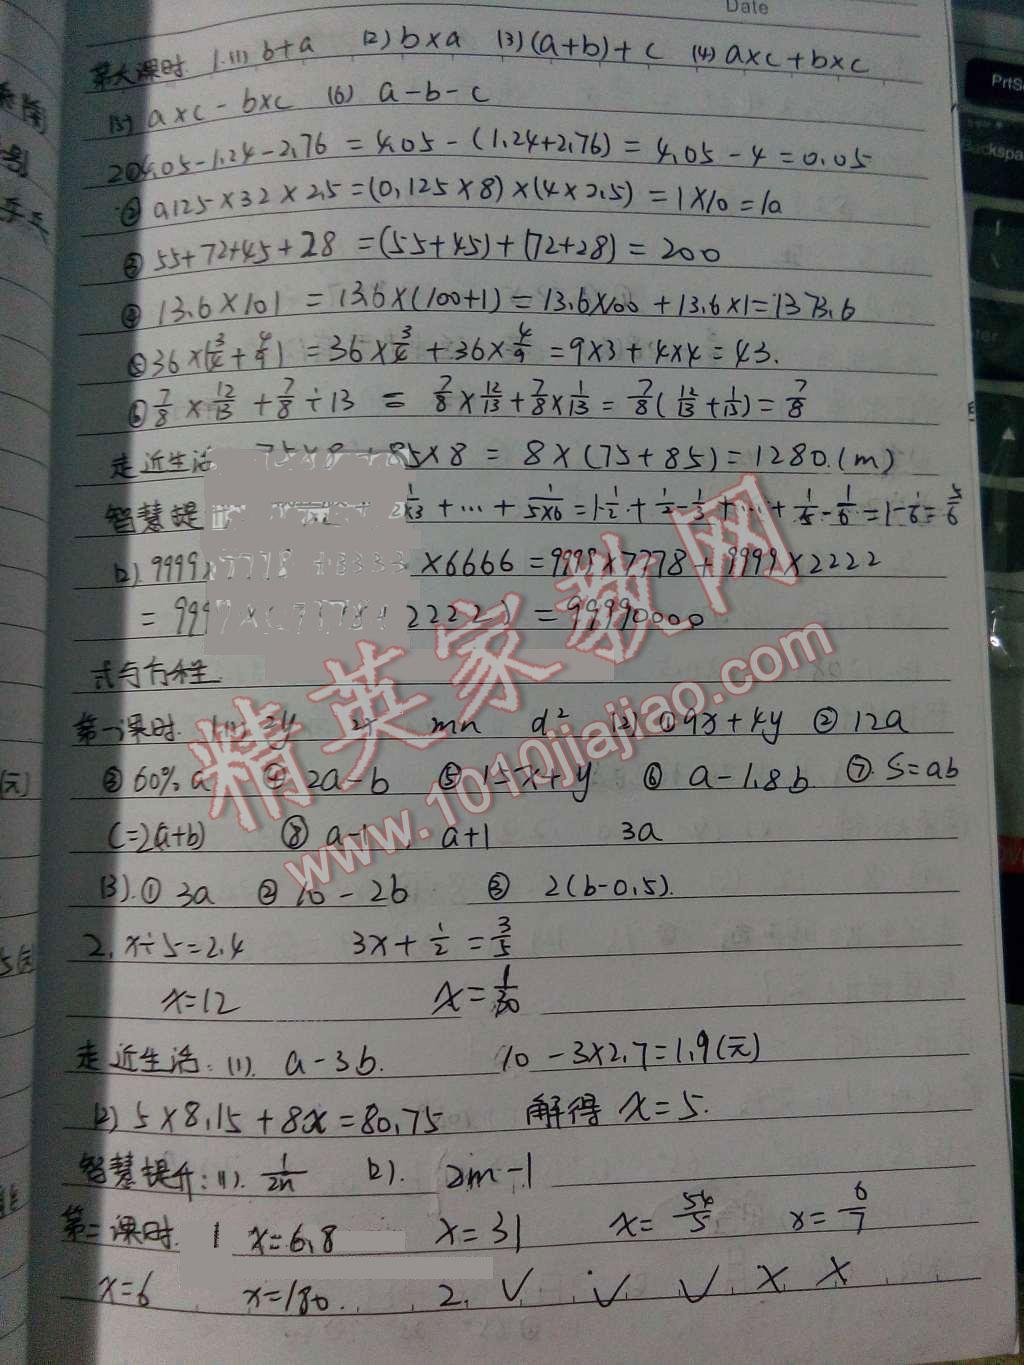 Date
第六课时. 1.(1) b+a (2) b×a (3)(a+b)+c (4) a×c+b×c
(5) a×c-b×c (6) a-b-c
2①4.05-1.24-2.76=4.05-(1.24+2.76)=4.05-4=0.05
② 0.125×32×2.5=(0.125×8)×(4×2.5)=1×10=10
③ 55+72+45+28=(55+45)+(72+28)=200
④ 13.6×101=13.6×(100+1)=13.6×100+13.6×1=1373.6
⑤36×(3/4+4/9)=36×3/4+36×4/9=9×3+4×4=43.
⑥ 7/8×12/13+7/8÷13=7/8×12/13+7/8×1/13=7/8(12/13+1/13)=7/8
走近生活 75×8+85×8=8×(75+85)=1280.(m)
智慧提 + 1/2×3+…+1/5×6=1-1/2+1/2-1/3+…+1/5-1/6=1-1/6=5/6
(2).9999×7778+3333×6666=9999×7778+9999×2222
=9999×(7778+2222)=99990000
式与方程
第一课时. 1.(1) 3y 2x mn d² (2)①9x+ky ② 12a
③ 60% a ④ 2a-b ⑤ 15-x+y ⑥ a-1.8b ⑦. S=ab
C=2(a+b) ⑧ a-1, a+1 3a
(3).① 3a ② 10-2b ③ 2(b-0.5).
2. x÷5=2.4 3x+1/2=3/5
x=12 x=1/30
走近生活. (1). a-3b. 10-3×2.7=1.9(元)
(2) 5×8.15+8x=80.75 解得 x=5.
智慧提升:(1). 1/2n (2). 2m-1
第二课时. 1 x=6.8 x=31 x=54/5 x=6/7
x=6 x=180. 2. ✓ ✓ ✓ × ×
精英家教网
www.1010jiajiao.com
PrtSc
Backspa